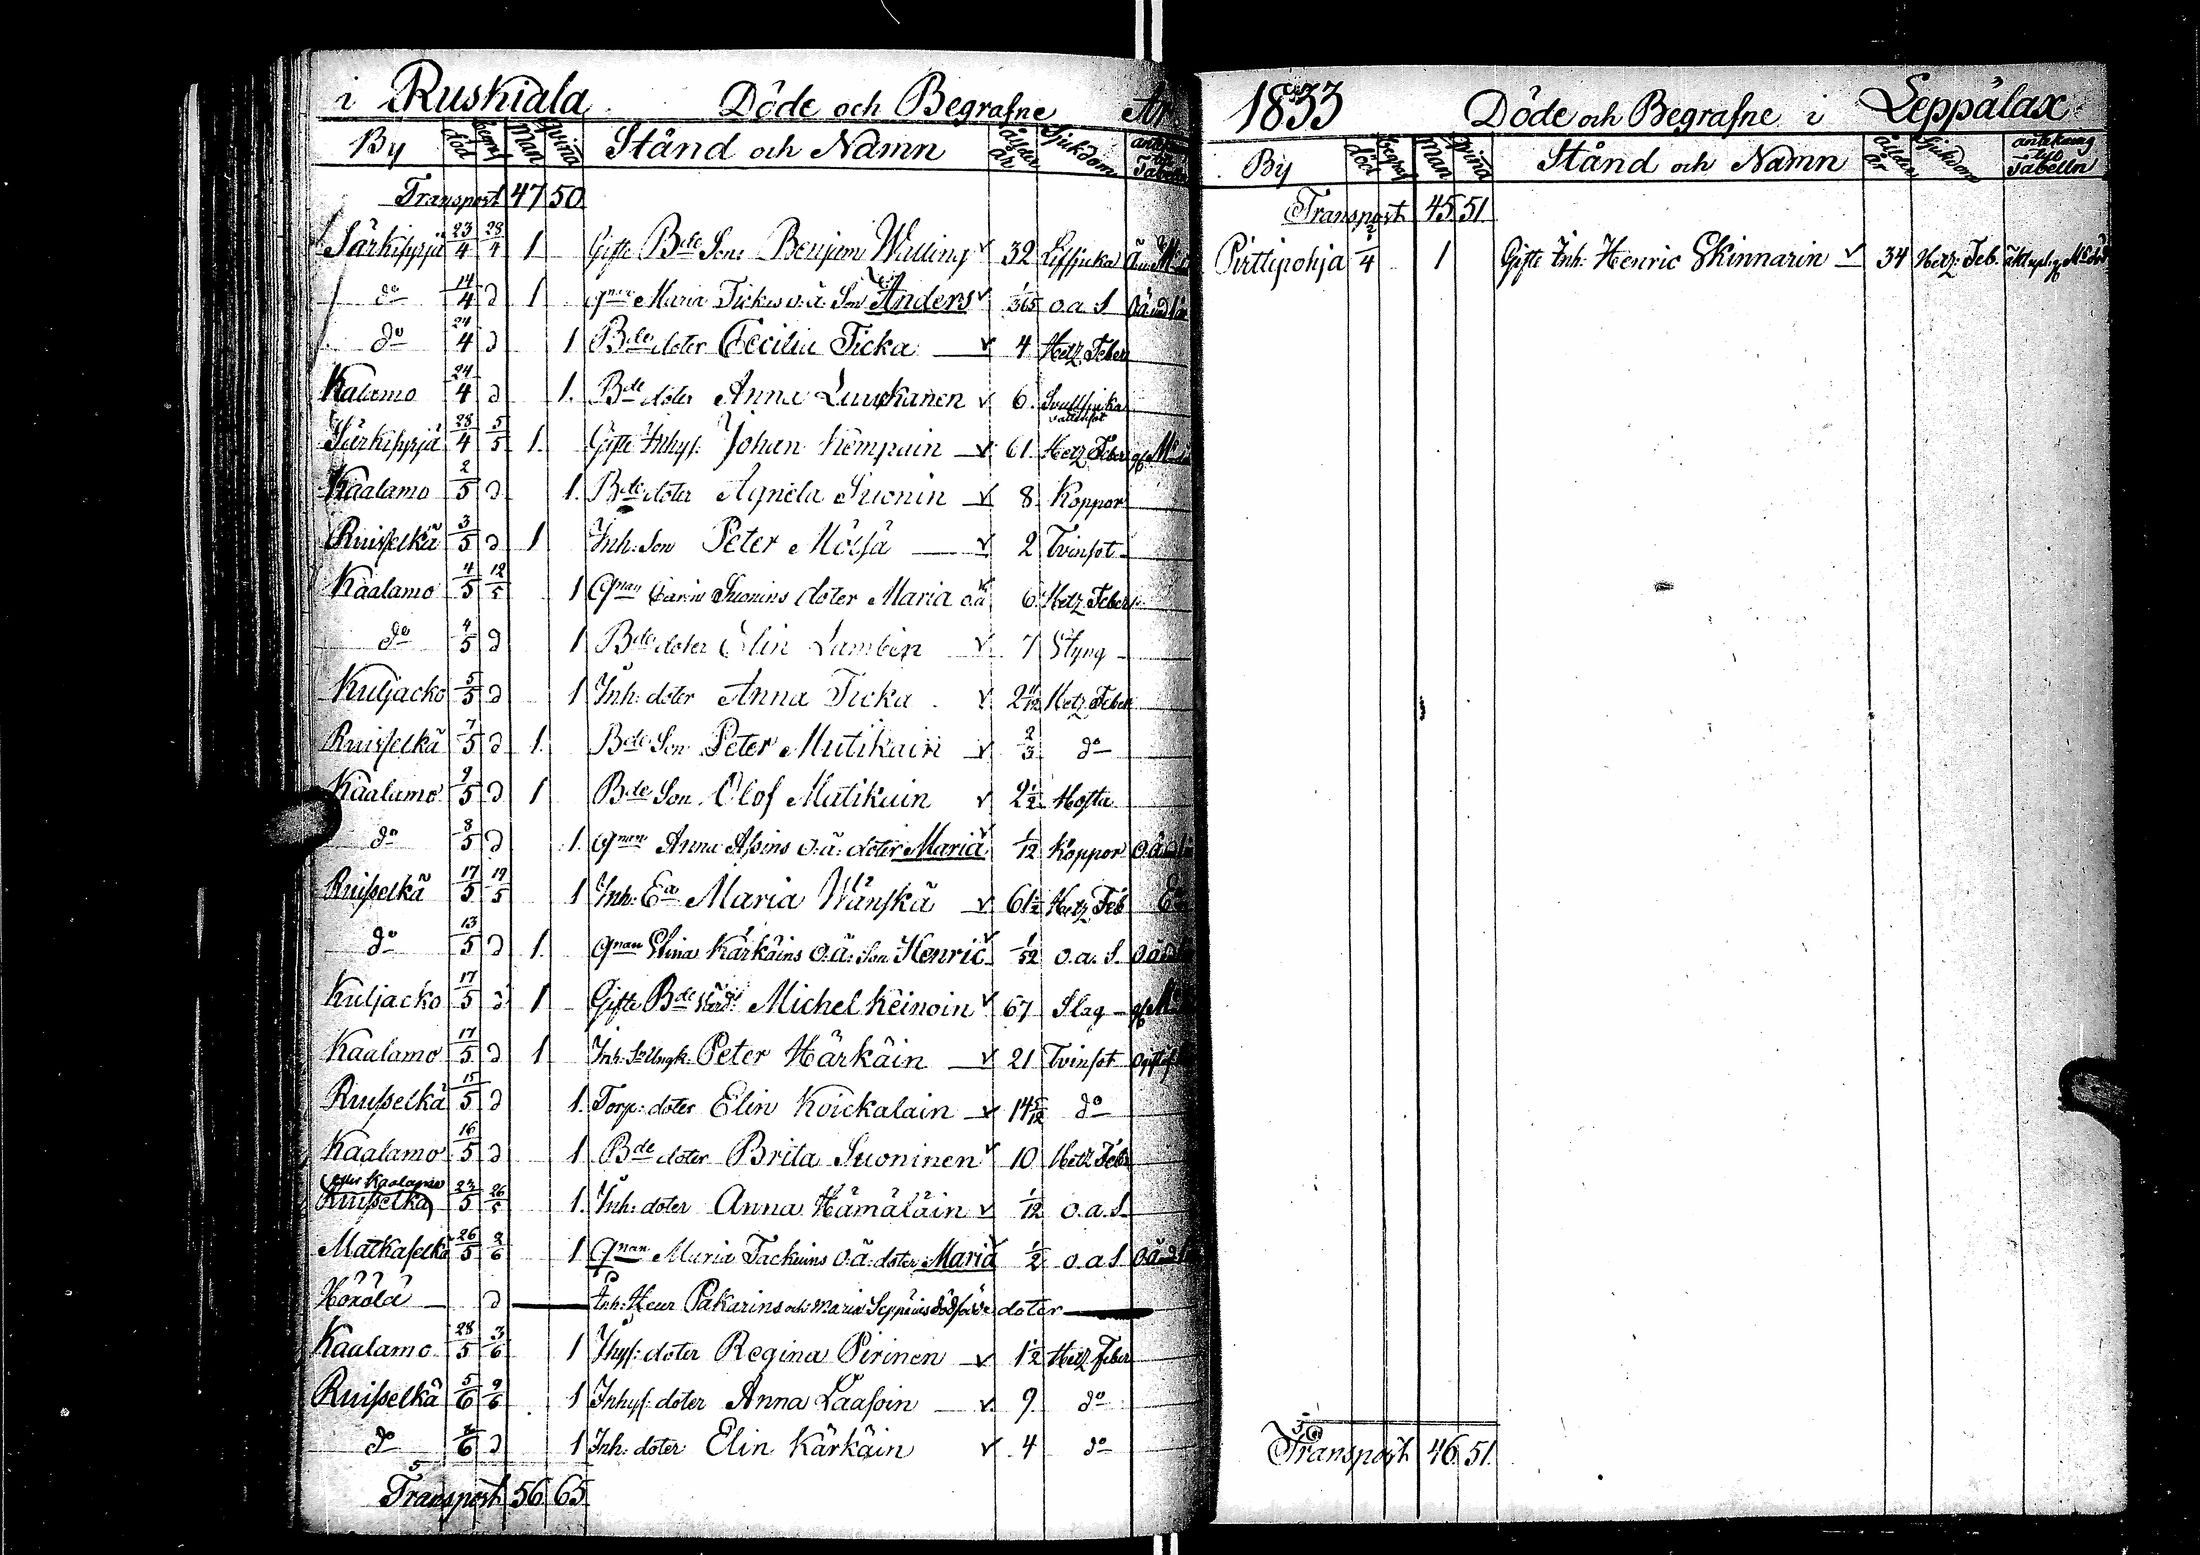 i Ruskiala Döde och Begrafne År
By död begr Man Qvinn Stånd och Namn ålder år Sjukdom
Transport 47 50
Särkisyrjä 23/4 28/4 1 Gifte Bde Son Benjam Walling 32
do 14/4 d 1 qnan Maria Tickas o.ä. Son Anders 1/365 o.a.S
do 24/4 d 1 Bde doter Cecilia Ticka 4 Hetz Feber
Kalamo 24/4 d 1. Bde doter Anna Luuskanen 6.
Särkisyrjä 28/4 5/5 1. Gifte Inhys: Johan Kempain 61 Hetz Feber
Kaalamo 2/5 d 1. Bde doter Agneta Suonin 8 Koppor
Ruisselkä 3/5 d 1 Inh: Son Peter Mölsä 2 Tvinsot
Kaalamo 4/5 12/5 1 Qnan Carin Suonins doter Maria o.ä 6 Hetz Feber
do 4/5 d 1 Bde doter Elin Lambin 7 Styng
Kuljacko 5/5 d 1 Inh: doter Anna Ticka 2 11/12 Hetz Feber
Ruisselkä 7/5 d 1. Bde Son Peter Mutikain 2/3 do
Kaalamo 9/5 d 1 Bde Son Olof Mutikain 2 1/2 Hosta
do 8/5 d 1. Qnan Anna Assins o.ä: doter Maria 1/12 Koppor
Ruisselkä 17/5 19/5 1 Inh: Ea Maria Wänskä 61 1/2 Hetz Feb
do 13/5 d 1. Qnan Stina Kärkäins o.ä: Son Henric 1/52 o.a.S.
Kuljacko 17/5 d 1 Gifte Bde Michel Keinoin 67 Slag
Kaalamo 17/5 d 1 Inh: Peter Härkäin 21 Tvinsot
Ruisselkä 15/5 d 1. Torp: doter Elin Koickalain 14 5/12 do
Kaalamo 16/5 d 1 Bde doter Brita Suoninen 10 Hetz Feb
eller Kaalamo
Ruisselkä 23/5 26/5 1. Inh: doter Anna Hämäläin 1/12 o.a.S.
Matkaselkä 26/5 2/6 1 Qnan Maria Tackuins o.ä: doter Maria 1/2 o.a.S
Hörölä d Inh: Henr Pakarins och Maria Seppäins dödfödde doter
Kaalamo 28/5 3/6 1 Ihys: doter Regina Pirinen 1 1/2 Hetz feber
Ruisselkä 5/6 9/6 1 Inhys: doter Anna Laasoin 9. do
do d 1 Inh: doter Elin Kärkäin 4 do
Transport 56 65
1833 Döde och Begrafne i Leppälax
By död begraf Man qvind Stånd och Namn ålder år Sjukdom antekning til Tabelln
Transport 45 51
Pirttipohja 2/4 1 Gifte Inh: Henric Skinnarin 34 Hetz: Feb.
Transport 46 51